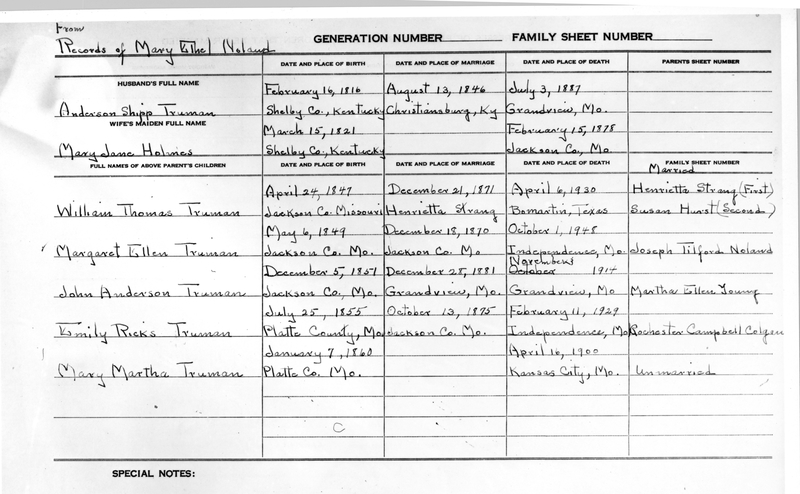 From
Records of Mary Ethel Noland
GENERATION NUMBER FAMILY SHEET NUMBER
DATE AND PLACE OF BIRTH DATE AND PLACE OF MARRIAGE DATE AND PLACE OF DEATH PARENTS SHEET NUMBER
HUSBAND'S FULL NAME
February 16, 1816 August 13, 1846 July 3, 1887
Anderson Shipp Truman Shelby Co., Kentucky Christiansburg, Ky Grandview, Mo.
WIFE'S MAIDEN FULL NAME
March 15, 1821 February 15, 1878
Mary Jane Holmes Shelby Co., Kentucky Jackson Co., Mo.
FULL NAMES OF ABOVE PARENT'S CHILDREN DATE AND PLACE OF BIRTH DATE AND PLACE OF MARRIAGE DATE AND PLACE OF DEATH FAMILY SHEET NUMBER
Married
April 24, 1847 December 21, 1871 April 6, 1930 Henrietta Strang (First)
William Thomas Truman Jackson Co. Missouri Henrietta Strang Bomartin, Texas Susan Hurst (Second)
May 6, 1849 December 18, 1870 October 1, 1948
Margaret Ellen Truman Jackson Co. Mo. Jackson Co. Mo. Independence, Mo. Joseph Tilford Noland
November
December 5, 1851 December 28, 1881 October 1914
John Anderson Truman Jackson Co., Mo. Grandview, Mo. Grandview, Mo Martha Ellen Young
July 25, 1855 October 13, 1875 February 11, 1929
Emily Ricks Truman Platte County, Mo. Jackson Co. Mo. Independence, Mo Rochester Campbell Colgan
January 7, 1860 April 16, 1900
Mary Martha Truman Platte Co. Mo. Kansas City, Mo. Unmarried
C
SPECIAL NOTES: